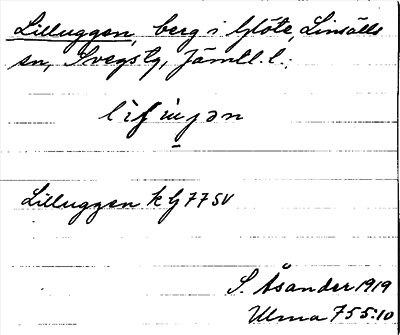 Lilluggen, berg i Glöte, Linsälls
sn, Svegs tg, Jämtl. l.;
Lilluggen k G 77 SV
S. Åsander 1919
Ulma 755:10